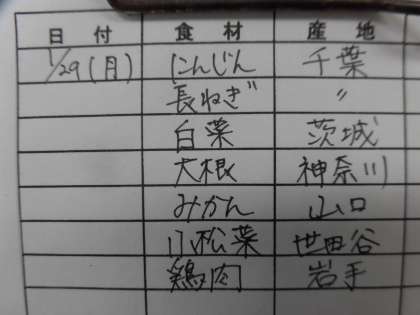 日付 食材 産地
1/29(月) にんじん 千葉
長ねぎ 〃
白菜 茨城
大根 神奈川
みかん 山口
小松菜 世田谷
鶏肉 岩手